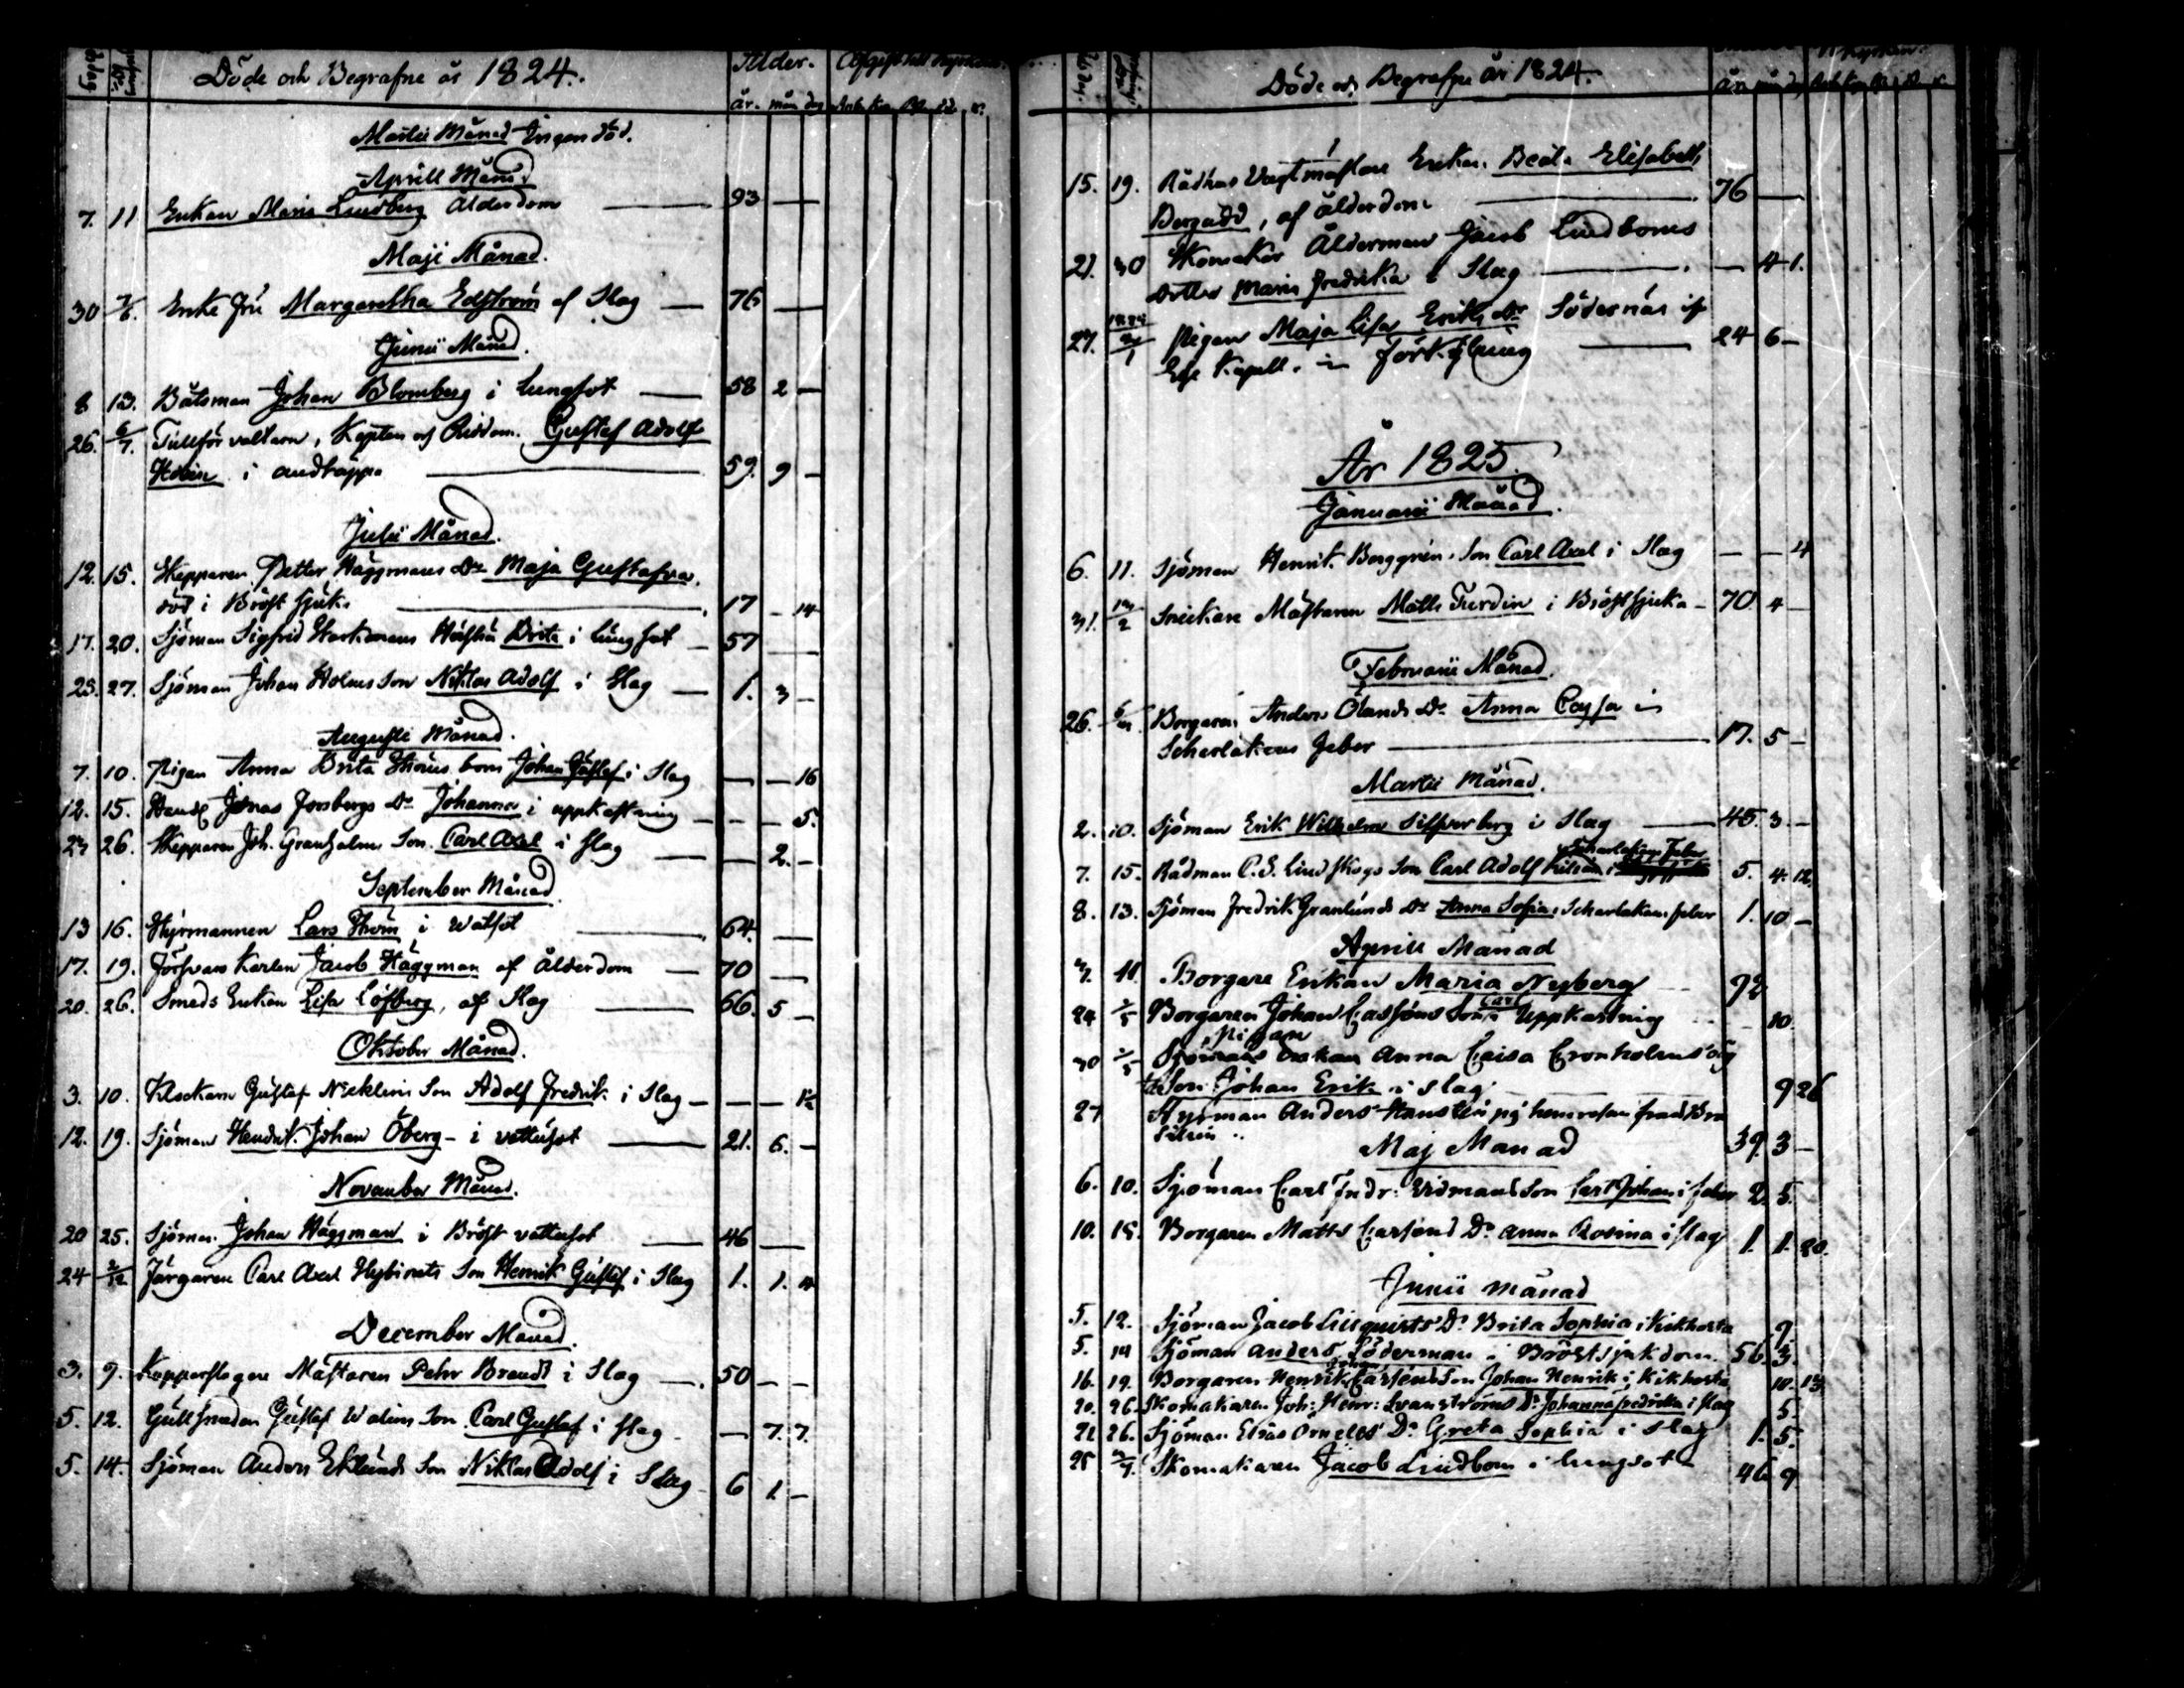 Döde och Begrafne år 1824.
Ålder.
år. mån dag
Martii Månad Ingen död.
Aprill Månad
7. 11 Enkan Maria Lindberg Ålderdom — 93 —
Maji Månad.
30 7/6. Enke Fru Margaretha Edström af Slag — 76 —
Junii Månad.
8 13. Båtsman Johan Blomberg i Lungsot — 58 2 —
26. 6/7. Tullförvaltarn, Kapten och Riddarn. Gustaf Adolf
i andtäppa — 59. 9 —
Julii Månad.
12. 15. Skepparen Petter Häggmans Dr Maja Gustafva.
död i Bröst sjuk. — 17 — 14
17. 20. Sjöman Sigfrid Harkmans Hustru Brita i lungsot — 57 —
25. 27. Sjöman Johan Holms Son Niklas Adolf i Slag — 1. 3 —
Augusti Månad.
7. 10. Pigan Anna Brita Thoms barn Johan Gustaf i Slag — — 16
12. 15. Jonas Forsbergs Dr Johanna i uppkastning — — — 5.
23 26. Skepparen Joh. Granholms Son. Carl Axel i slag — — 2. —
September Månad
13 16. Styrmannen Lars Thom i Watsot — 64. —
17. 19. Försvars Karlen Jacob Häggman af Ålderdom — 70 —
20. 26. Smeds Enkan Lisa Löfberg, af Slag — 66. 5 —
Oktober Månad.
3. 10. Klockarn Gustaf Son Adolf Fredrik i Slag — — — 1/2
12. 19. Sjöman Hendrik Johan Öberg — i vattusot — 21. 6. —
November Månad.
20 25. Sjöman. Johan Häggman i Bröst vattusot — 46 —
24 2/12 Färgaren Carl Axel Son Henrik Gustaf i Slag 1. 1. 4
December Månad.
3. 9. Kopparslagare Mästaren Pehr Brandt i Slag — 50 — —
5. 12. Gullsmeden Gustaf Walins Son. Carl Gustaf i slag — — 7. 7.
5. 14. Sjöman Anders Eklunds Son Niklas Adolf i Slag — 6 1. —
Döde och Begrafne år 1824.
15. 19. Rådhus Vagtmästare Enkan. Beata Elisabeth
, af ålderdom — 76 —
21. 30 Skomakar Ålderman Jacob Lindboms
dotter Maria Fredrika i Slag — . — 4 1.
27. Pigan Maja Lisa Eriks Dr Södernäs
Kapell. i förkylning — 24 6 —
År 1825.
Januarii Månad.
6. 11. Sjöman Henrik Berggrens Son Carl Axel i Slag — — 4
31. Snickare Mästaren Matts Turdin i Bröstsjuka — 70 4 —
Februarii Månad.
26. Borgaren Anders Ölands Dr Anna Caysa i
Scharlakans feber — 17. 5 —
Martii Månad.
2. 10. Sjöman Erik Wilhelm Silfverberg i Slag — 45. 3. —
Scharlakans Feber
7. 15. Rådman C. S. Lindskogs Son Carl Adolf i 5. 4. 12.
8. 13. Sjöman Fredrik Granlunds Dr Anna Sofia i Scharlakans feber 1. 10 —
Aprill Manad
11. Borgare Enkan Maria Nyberg 92
Carl
24 1/5 Borgaren Johan Carlsons Son Uppkastning 10
Pigan
30 1/5 Anna Caisa Cronholms
Son Johan Erik i slag — 9 26
27 Styrman Anders på hemresan från Bra
silien 39. 3 —
Maj Manad
6. 10. Sjöman Carl Fredr: Vidmans Son Carl Johan i feber 2. 5.
10. 15. Borgaren Matts Carlsons Dr Anna Rosina i slag 1. 1. 20.
Junii månad
5. 12. Sjöman Jacob Liliquists Dr Brita Sophia i Kikhosta 9
5. 14 Sjöman Anders Söderman i Bröstsjukdom. 56. 3.
Johan
16. 19. Borgaren Henrik Carlsons Son Johan Henrik i Kikhosta 10. 13
20. 26. Skomakaren Joh: Henr: Svanströms Dr Johanna Fredrika i slag 5.
22 26. Sjöman Elias Örnells Dr Greta Sophia i slag 1. 5.
25 Skomakaren Jacob Lindbom i lungsot 46 9